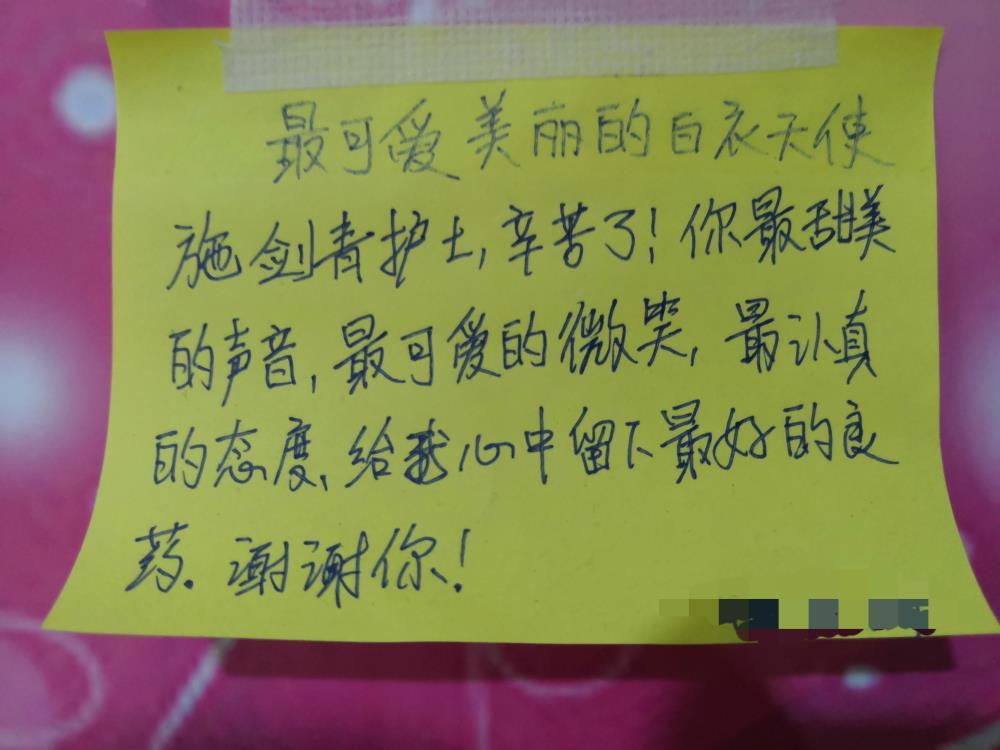 最可爱美丽的白衣天使
施剑青护士,辛苦了!你最甜美
的声音,最可爱的微笑,最认真
的态度,给我心中留下最好的良
药.谢谢你!